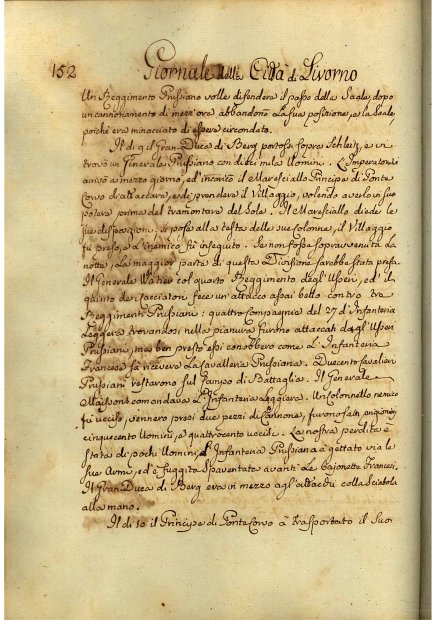 152 Giornale della Città di Livorno
Un Reggimento Prussiano volle difendere il passo della Saale, dopo
un cannonamento di mezz'ora abbandonò la sua posizione, e la Saale,
poichè era minacciato di essere circondato.
Il dì 9 il Gran-Duca di Berg portossi sopra Schleitz, e vi
trovò un Generale Prussiano con dieci mila Uomini. L'Imperatore vi
arrivò a mezzo giorno, ed incaricò il Maresciallo Principe di Ponte
Corvo di attaccare, e di prendere il Villaggio, volendo averlo in suo
potere prima del tramontare del Sole. Il Maresciallo diede le
sue disposizioni, si pose alla testa delle sue colonne, il Villaggio
fù preso, e l'inemico fù inseguito. Se non fosse sopravvenuta la
notte, la maggior parte di questa Divisione sarebbe stata presa.
Il Generale Watier col quarto Reggimento degl'Usseri, ed il
quinto dei Cacciatori fece un attacco assai bello contro tre
Reggimenti Prussiani: quattro Compagnie del 27 d'Infanteria
Leggera trovandosi nella pianura furono attaccati dagl'Usseri
Prussiani, ma ben presto essi conobbero come L'Infanteria
Francese sà ricevere la Cavalleria Prussiana. Duecento Cavalieri
Prussiani restarono sul Campo di Battaglia. Il Generale
Maisons comandava l'Infanteria Leggiera. Un Colonnello nemico
fù ucciso, vennero presi due pezzi di Cannone, furono fatti prigionieri
cinquecento Uomini, e quattrocento uccisi. La nostra perdita è
stata di pochi Uomini; L'Infanteria Prussiana à gettato via le
sue Armi, ed è fuggita spaventata avanti Le Bajonette Francesi.
Il Gran-Duca di Berg era in mezzo agl'attacchi colla Sciabola
alla mano.
Il dì 10 il Principe di Ponte Corvo à trasportato il Suo